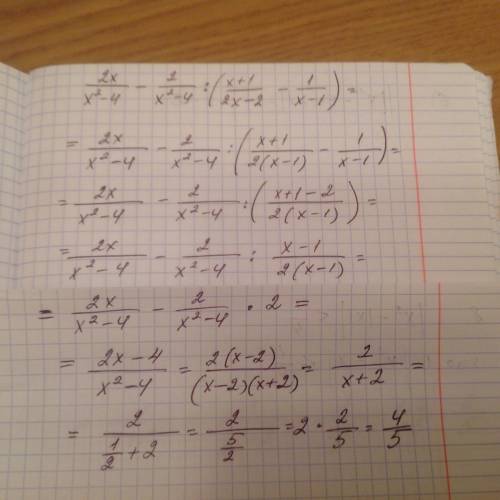 2x/(x²-4) - 2/(x²-4) : ((x+1)/(2x-2) - 1/(x-1)) =
= 2x/(x²-4) - 2/(x²-4) : ((x+1)/(2(x-1)) - 1/(x-1)) =
= 2x/(x²-4) - 2/(x²-4) : ((x+1-2)/(2(x-1))) =
= 2x/(x²-4) - 2/(x²-4) : (x-1)/(2(x-1)) =
= 2x/(x²-4) - 2/(x²-4) · 2 =
= (2x-4)/(x²-4) = 2(x-2)/((x-2)(x+2)) = 2/(x+2) =
= 2/(1/2+2) = 2/(5/2) = 2 · 2/5 = 4/5